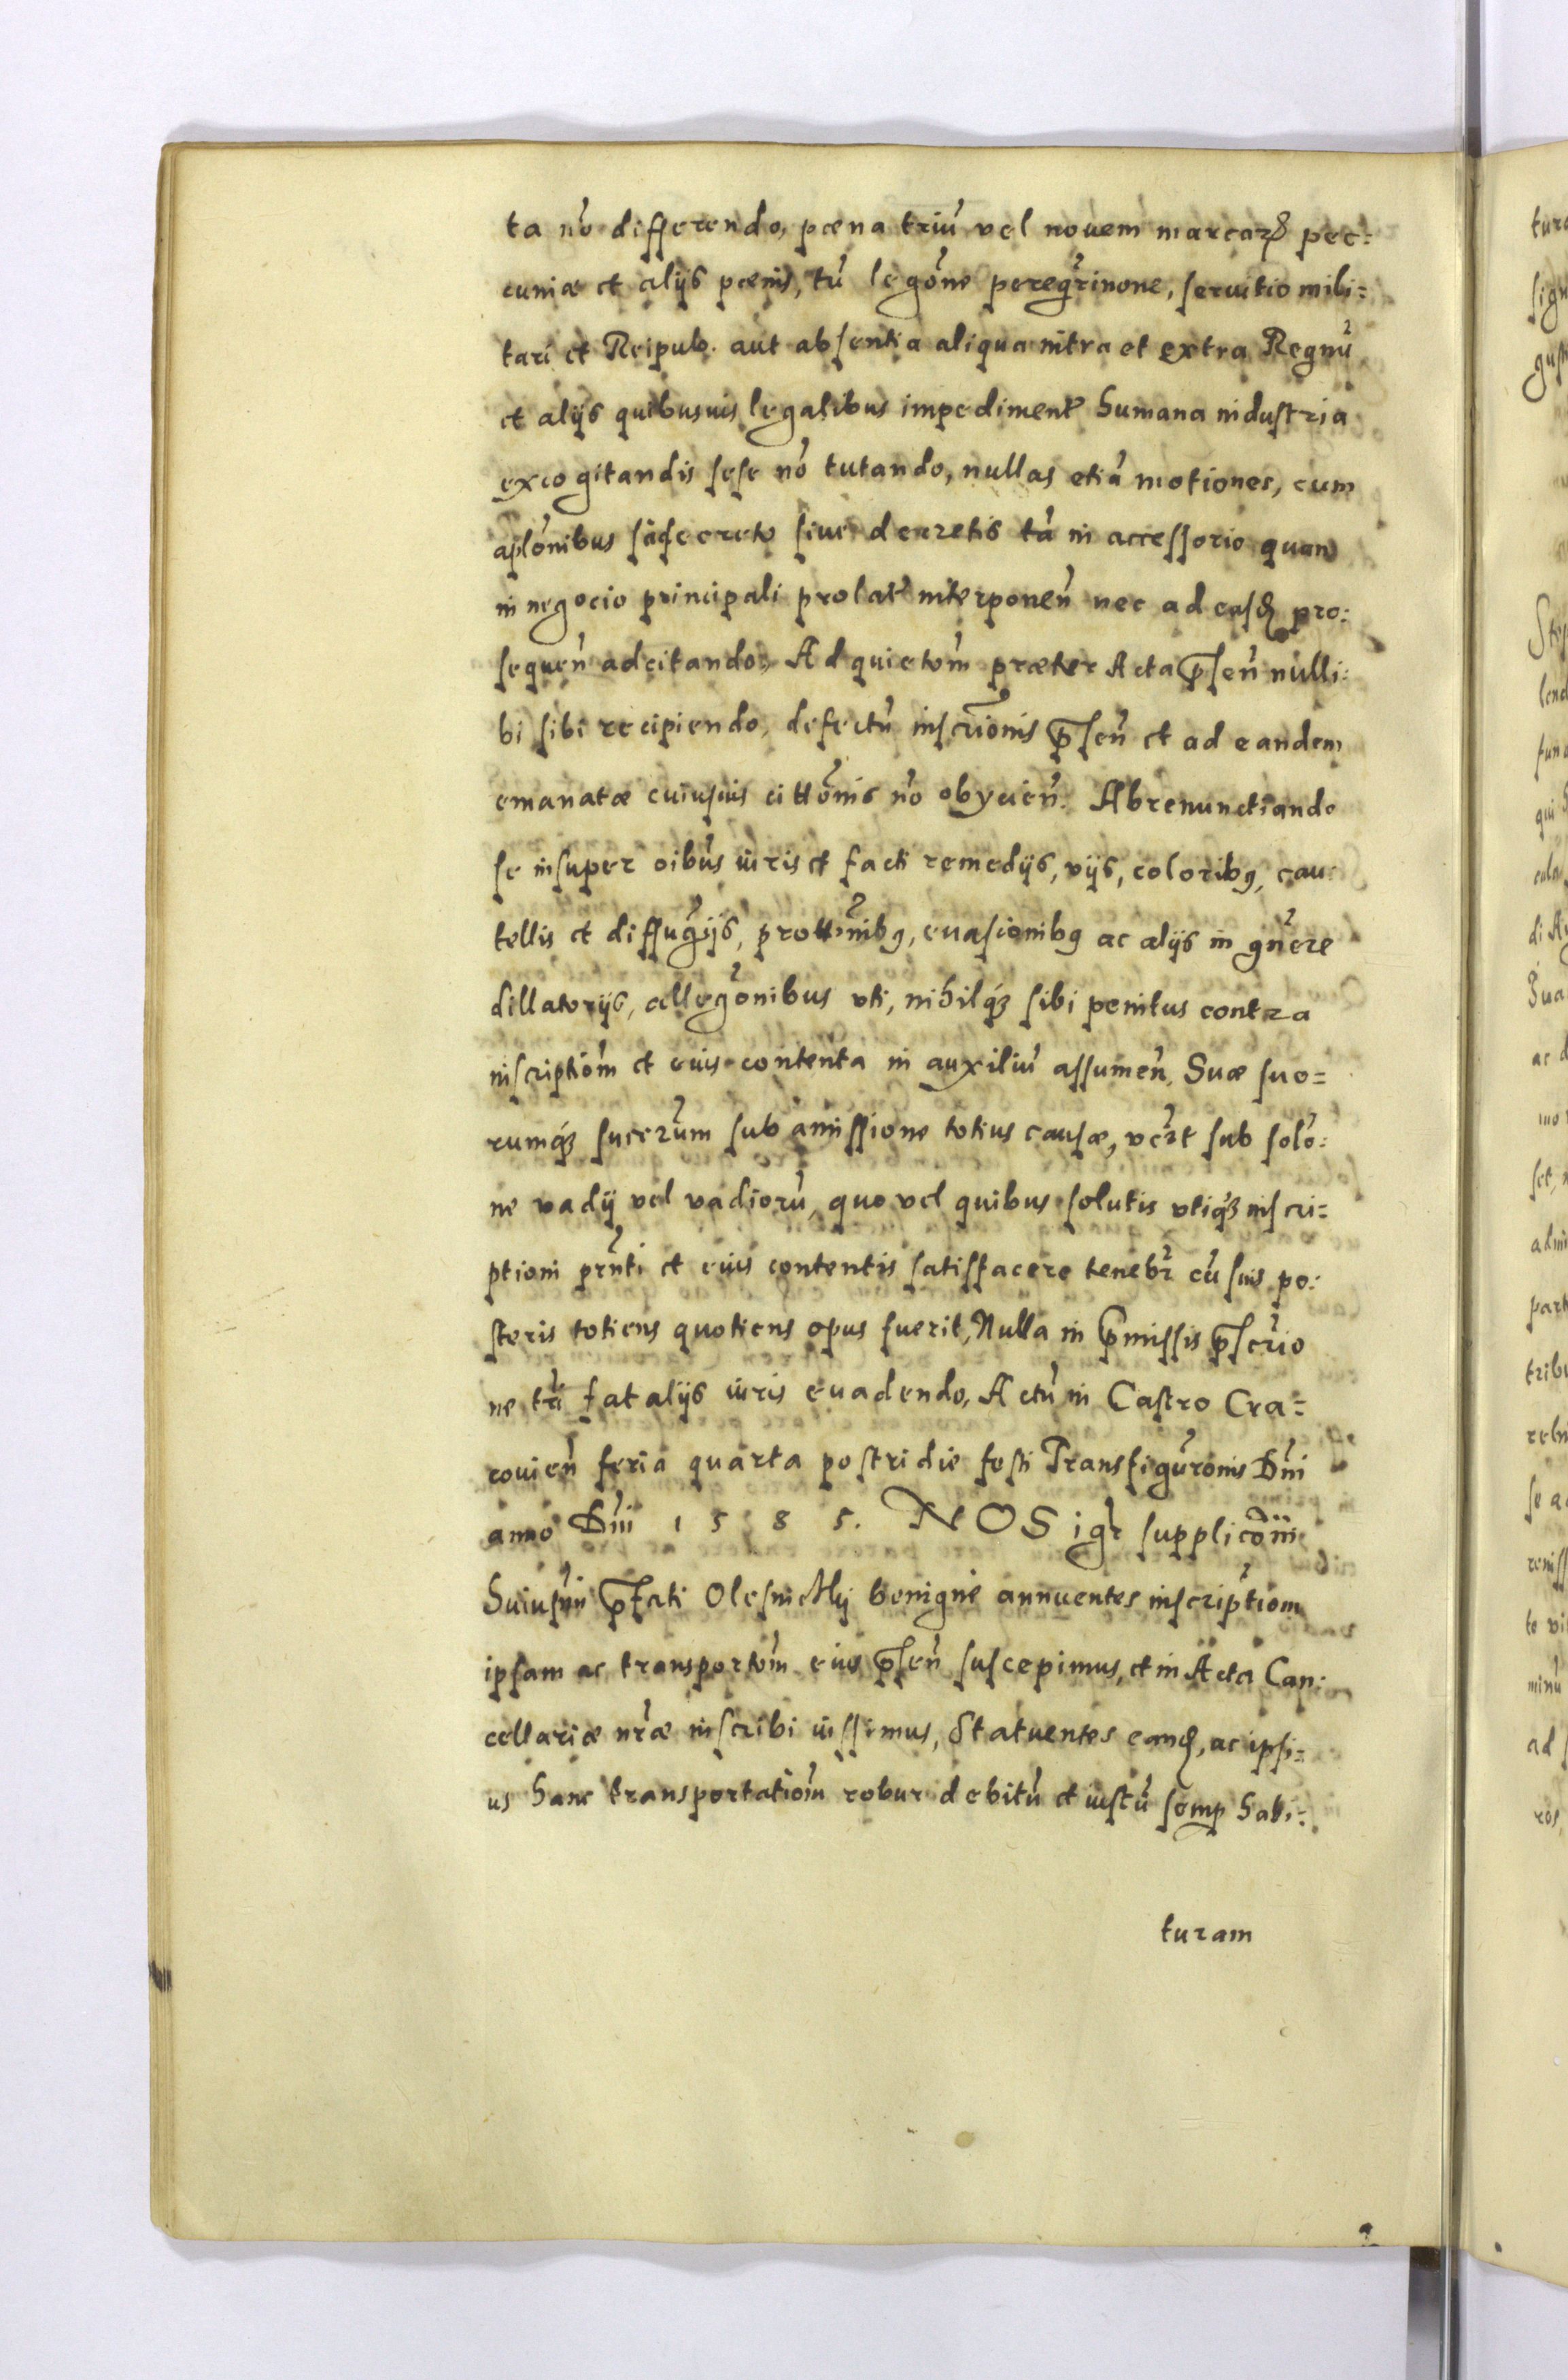 ta nō differendo, pœna triū vel novem marcarꝝ pec=
cuniæ et alijs pœnis, tū legōne peregrinone, servitio mili=
tari et Reipub. aut absentia aliqua intra et extra Regnū
et alijs quibusvis legalibus impediment humana industria
excogitandis sese nō tutando, nullas etiā motiones, cum
aplōnibus sive decretis tā in accessorio quam
in negocio principali prolat interponen̄ nec ad easdꝫ pro:
sequen̄ adcitando, Ad quietom̄ præter Acta p̄sen̄ nulli:
bi sibi recipiendo, defectū inscrionis p̄sen̄ et ad eandem
emanatæ cuiusvis cittōnis nō obycien̄. Abrenunctiando
se insuper oībus iuris et facti remedijs, vijs, coloribꝯ, cau
tellis et diffugijs, evasionibꝯ ac alijs in gnere
dillatorijs, allegōnibus vti, nihilqꝫ sibi penitus contra
inscriptiōm et eius contenta in auxiliū assumen̄, Suæ suo=
rumqꝫ succrum sub amissione totius causæ, vert sub solō:
ne vadij vel vadiorū, quo vel quibus solutis vtiqꝫ inscri=
ptioni pnti et eius contentis satisfacere tenebr cū suis po:
steris totiens quotiens opus fuerit, Nulla in p̄missis p̄scrio
ne tri fatalijs iuris evadendo, Actū in Castro Cra=
covien̄ feria quarta postridie festi Transfiguronis Dn̄i
anno Dn̄i 1585. NOS igr supplicōm
huiusm̄i p̄fati Olesnickij benigne annuentes inscriptiom
ipsam ac transportom̄ eius p̄sen̄ suscepimus, et in Acta Can:
cellariæ nræ inscribi iussimus, Statuentes eandꝫ, ac ipsi=
us hanc transportatiōm robur debitū et iustū semꝑ habi:
turam